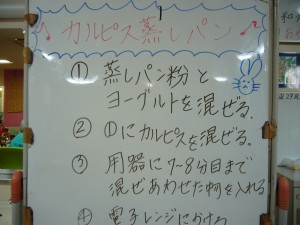 ♪カルピス蒸しパン♪
① 蒸しパン粉と
ヨーグルトを混ぜる.
② ①にカルピスを混ぜる.
③ 用器に7-8分目まで
混ぜあわせた中身を入れる
④ 電子レンジにかける